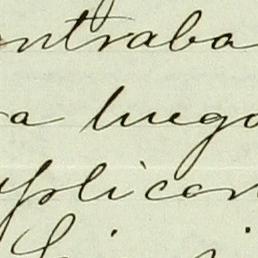 ntraba
a luego
plicar